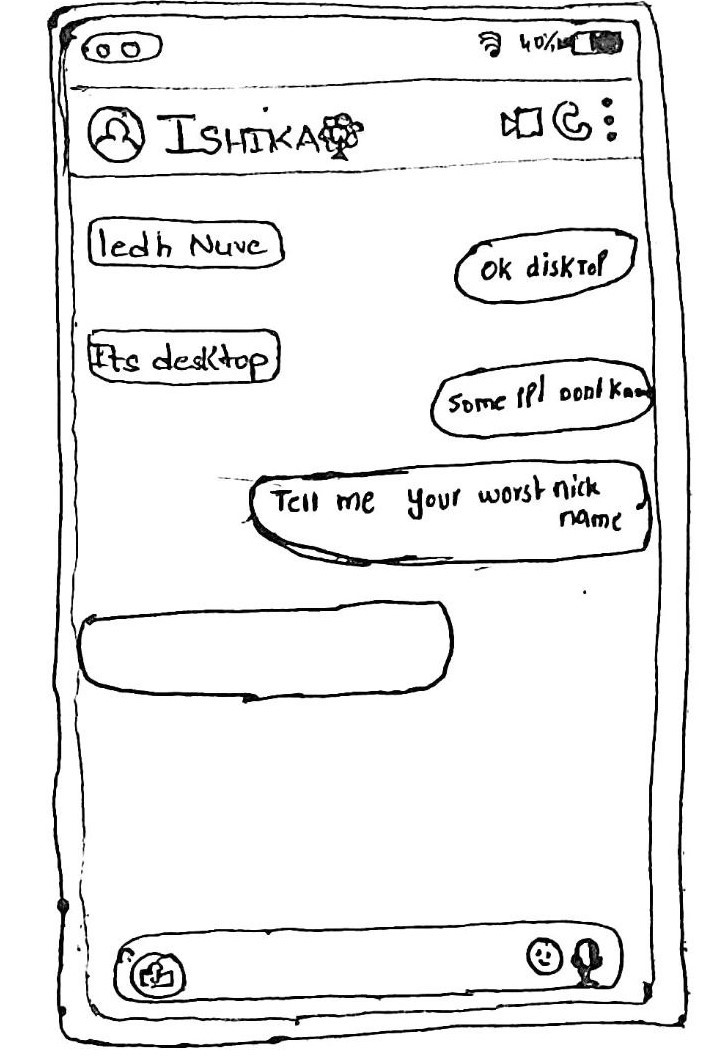 40%
ISHIKA
ledh Nuve
Ok diskTop
Its desktop
Some ppl dont
Tell me your worst nick
name